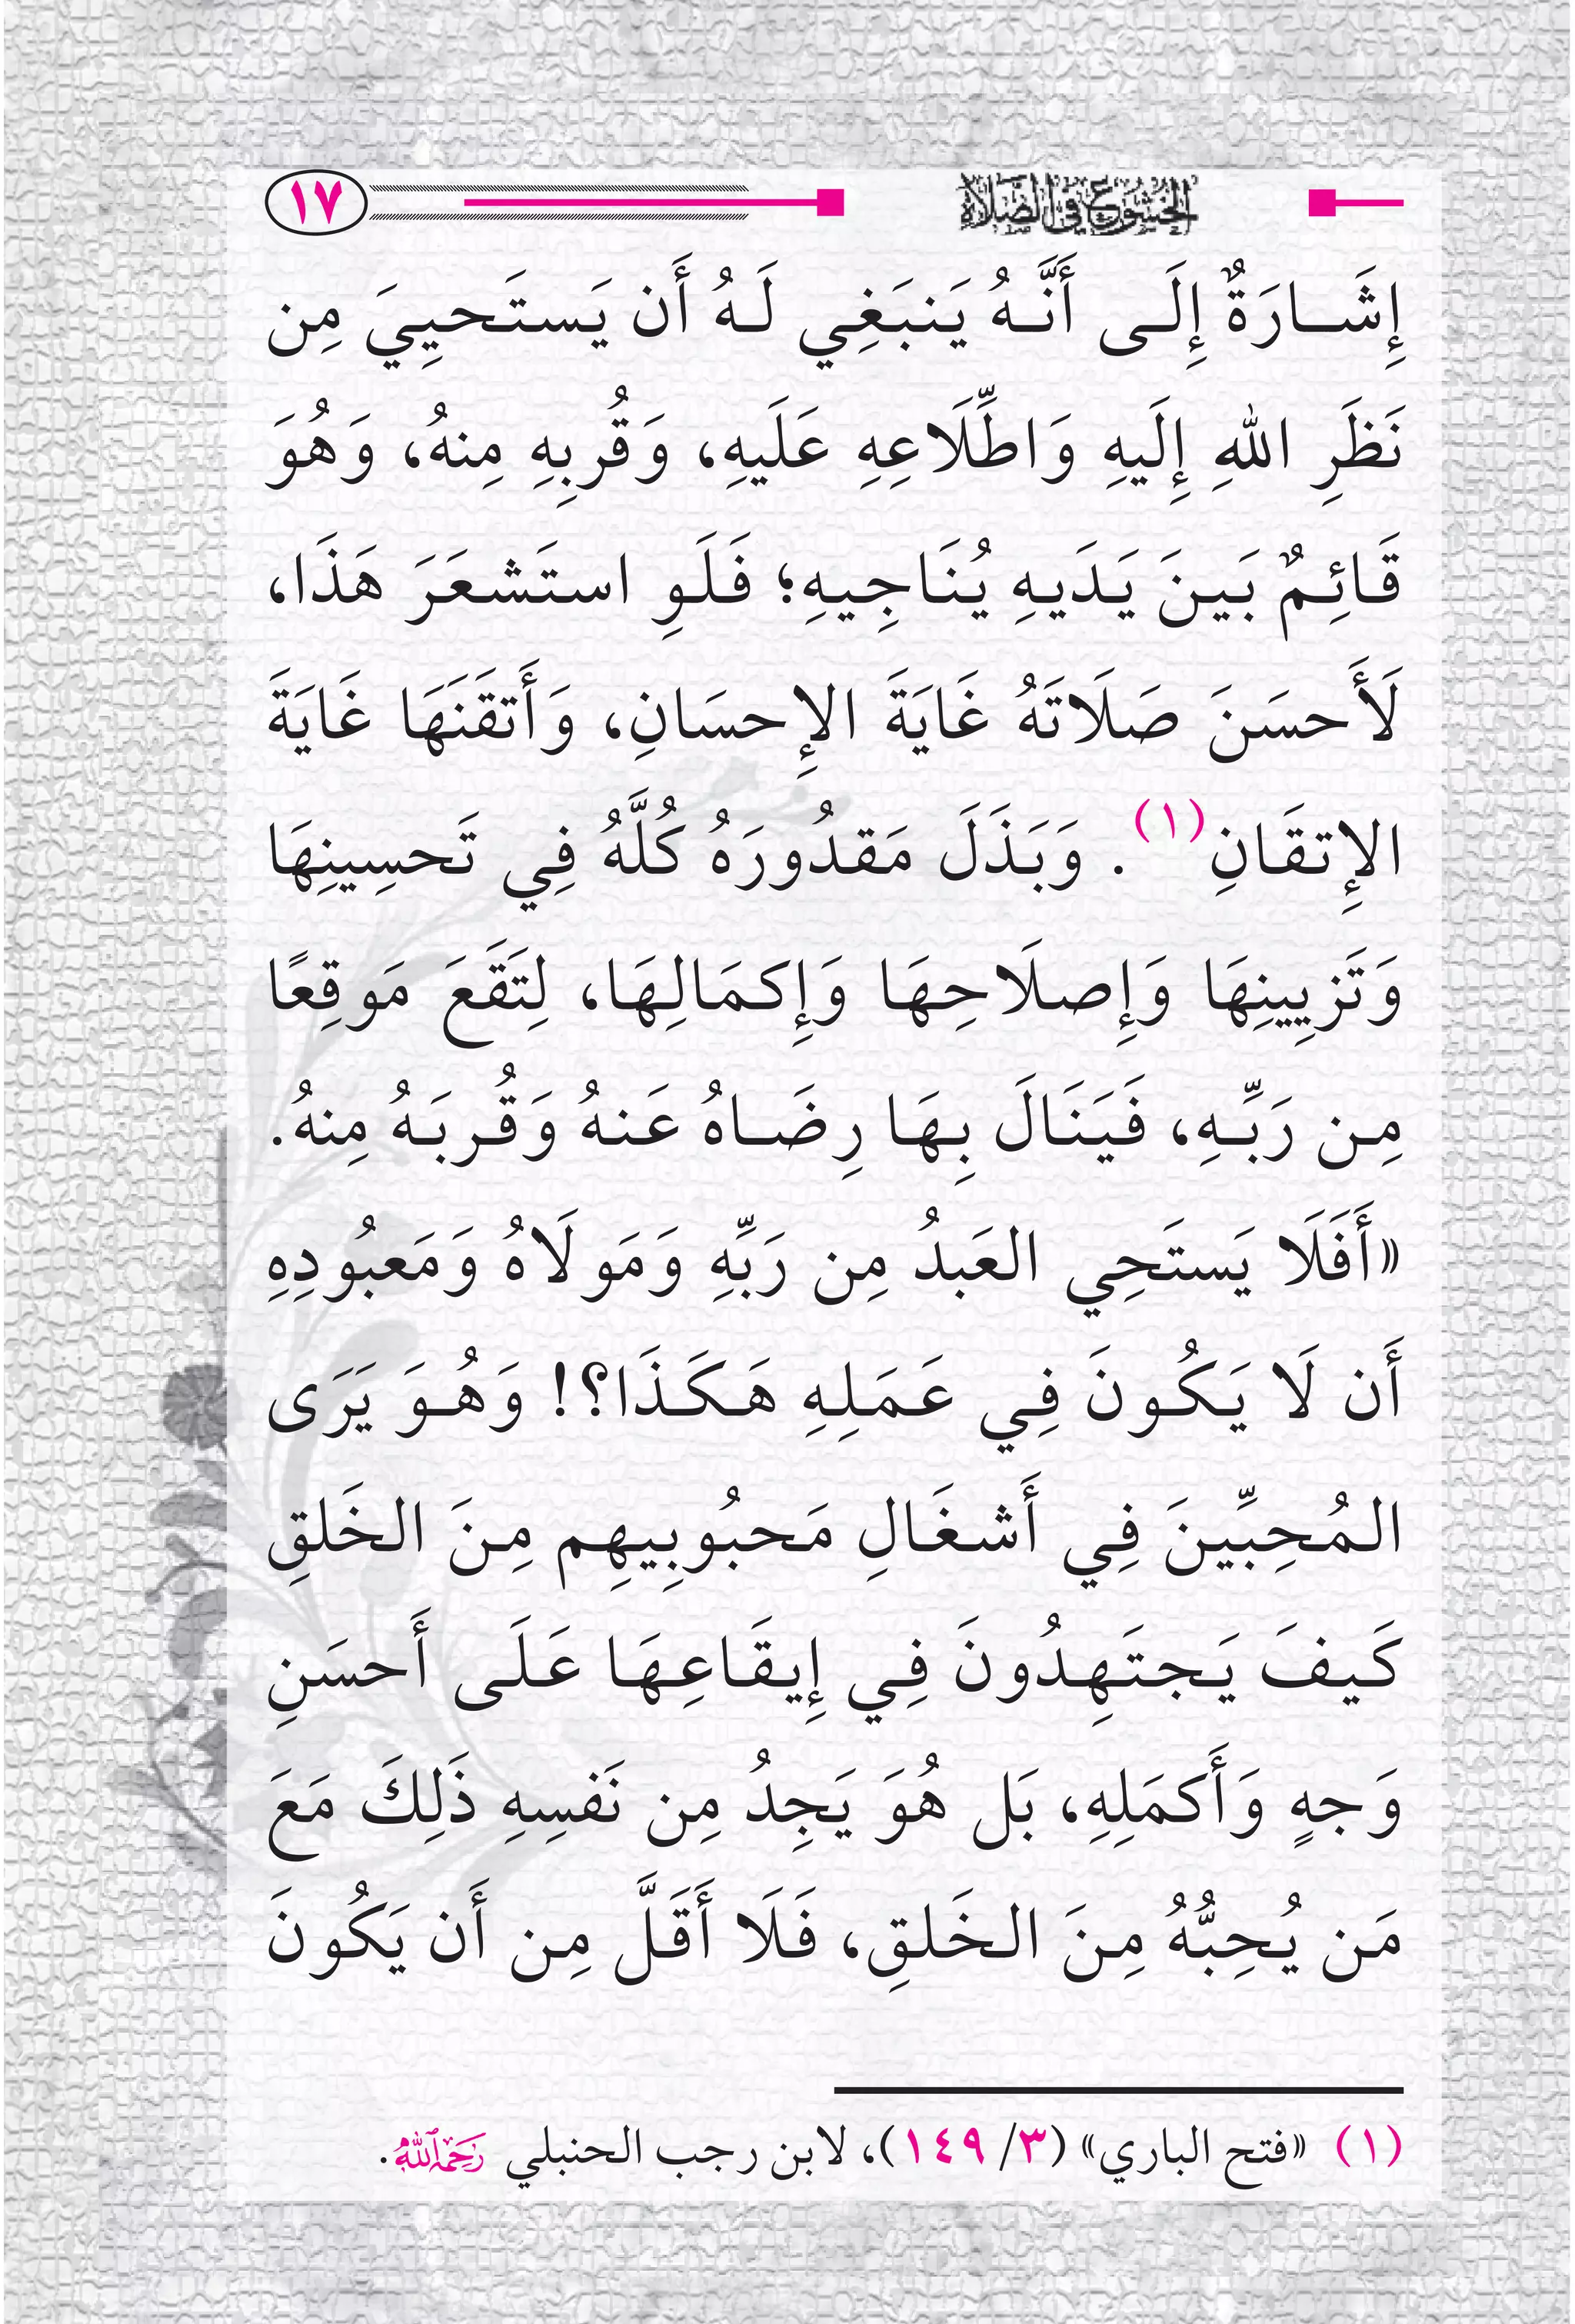 الخشوع في الصلاة ١٧
إِشَارَةٌ إِلَى أَنَّهُ يَنبَغِي لَهُ أَن يَستَحيِيَ مِن
نَظَرِ اللهِ إِلَيهِ وَاطِّلَاعِهِ عَلَيهِ، وَقُربِهِ مِنهُ، وَهُوَ
قَائِمٌ بَينَ يَدَيهِ يُنَاجِيهِ؛ فَلَوِ استَشعَرَ هَذَا،
لَأَحسَنَ صَلَاتَهُ غَايَةَ الإِحسَانِ، وَأَتقَنَهَا غَايَةَ
الإِتقَانِ(١). وَبَذَلَ مَقدُورَهُ كُلَّهُ فِي تَحسِينِهَا
وَتَزيِينِهَا وَإِصلَاحِهَا وَإِكمَالِهَا، لِتَقَعَ مَوقِعًا
مِن رَبِّهِ، فَيَنَالَ بِهَا رِضَاهُ عَنهُ وَقُربَهُ مِنهُ.
«أَفَلَا يَستَحِي العَبدُ مِن رَبِّهِ وَمَولَاهُ وَمَعبُودِهِ
أَن لَا يَكُونَ فِي عَمَلِهِ هَكَذَا؟! وَهُوَ يَرَى
المُحِبِّينَ فِي أَشغَالِ مَحبُوبِيهِم مِنَ الخَلقِ
كَيفَ يَجتَهِدُونَ فِي إِيقَاعِهَا عَلَى أَحسَنِ
وَجهٍ وَأَكمَلِهِ، بَل هُوَ يَجِدُ مِن نَفسِهِ ذَلِكَ مَعَ
مَن يُحِبُّهُ مِنَ الخَلقِ، فَلَا أَقَلَّ مِن أَن يَكُونَ
(١) «فتح الباري» (٣/ ١٤٩)، لابن رجب الحنبلي رَحِمَهُ اللهُ.